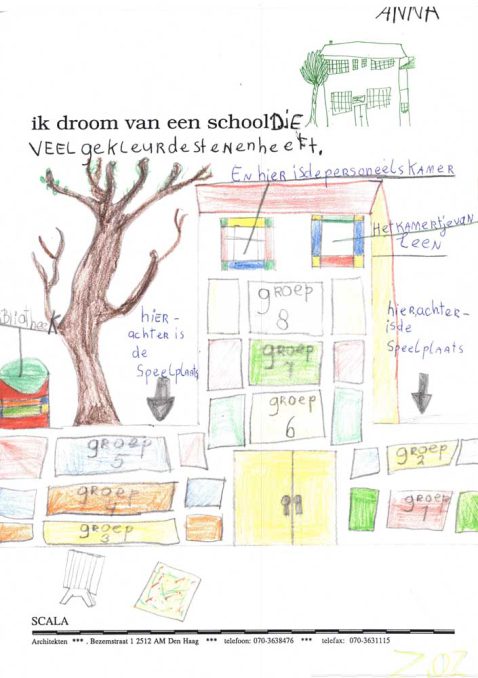 ANNA
ik droom van een school DiE
VEEL gekleurde stenen heeft.
En hier is de personeelskamer
Het kamertje van
Leen
groep
8
hier-
achter is
de
Speelplaats
hierachter-
is de
Speelplaats
Bibliotheek
groep
7
groep
6
groep
5
groep
2
groep
4
groep
1
groep
3
SCALA
Architekten *** . Bezemstraat 1 2512 AM Den Haag *** telefoon: 070-3638476 *** telefax: 070-3631115
202